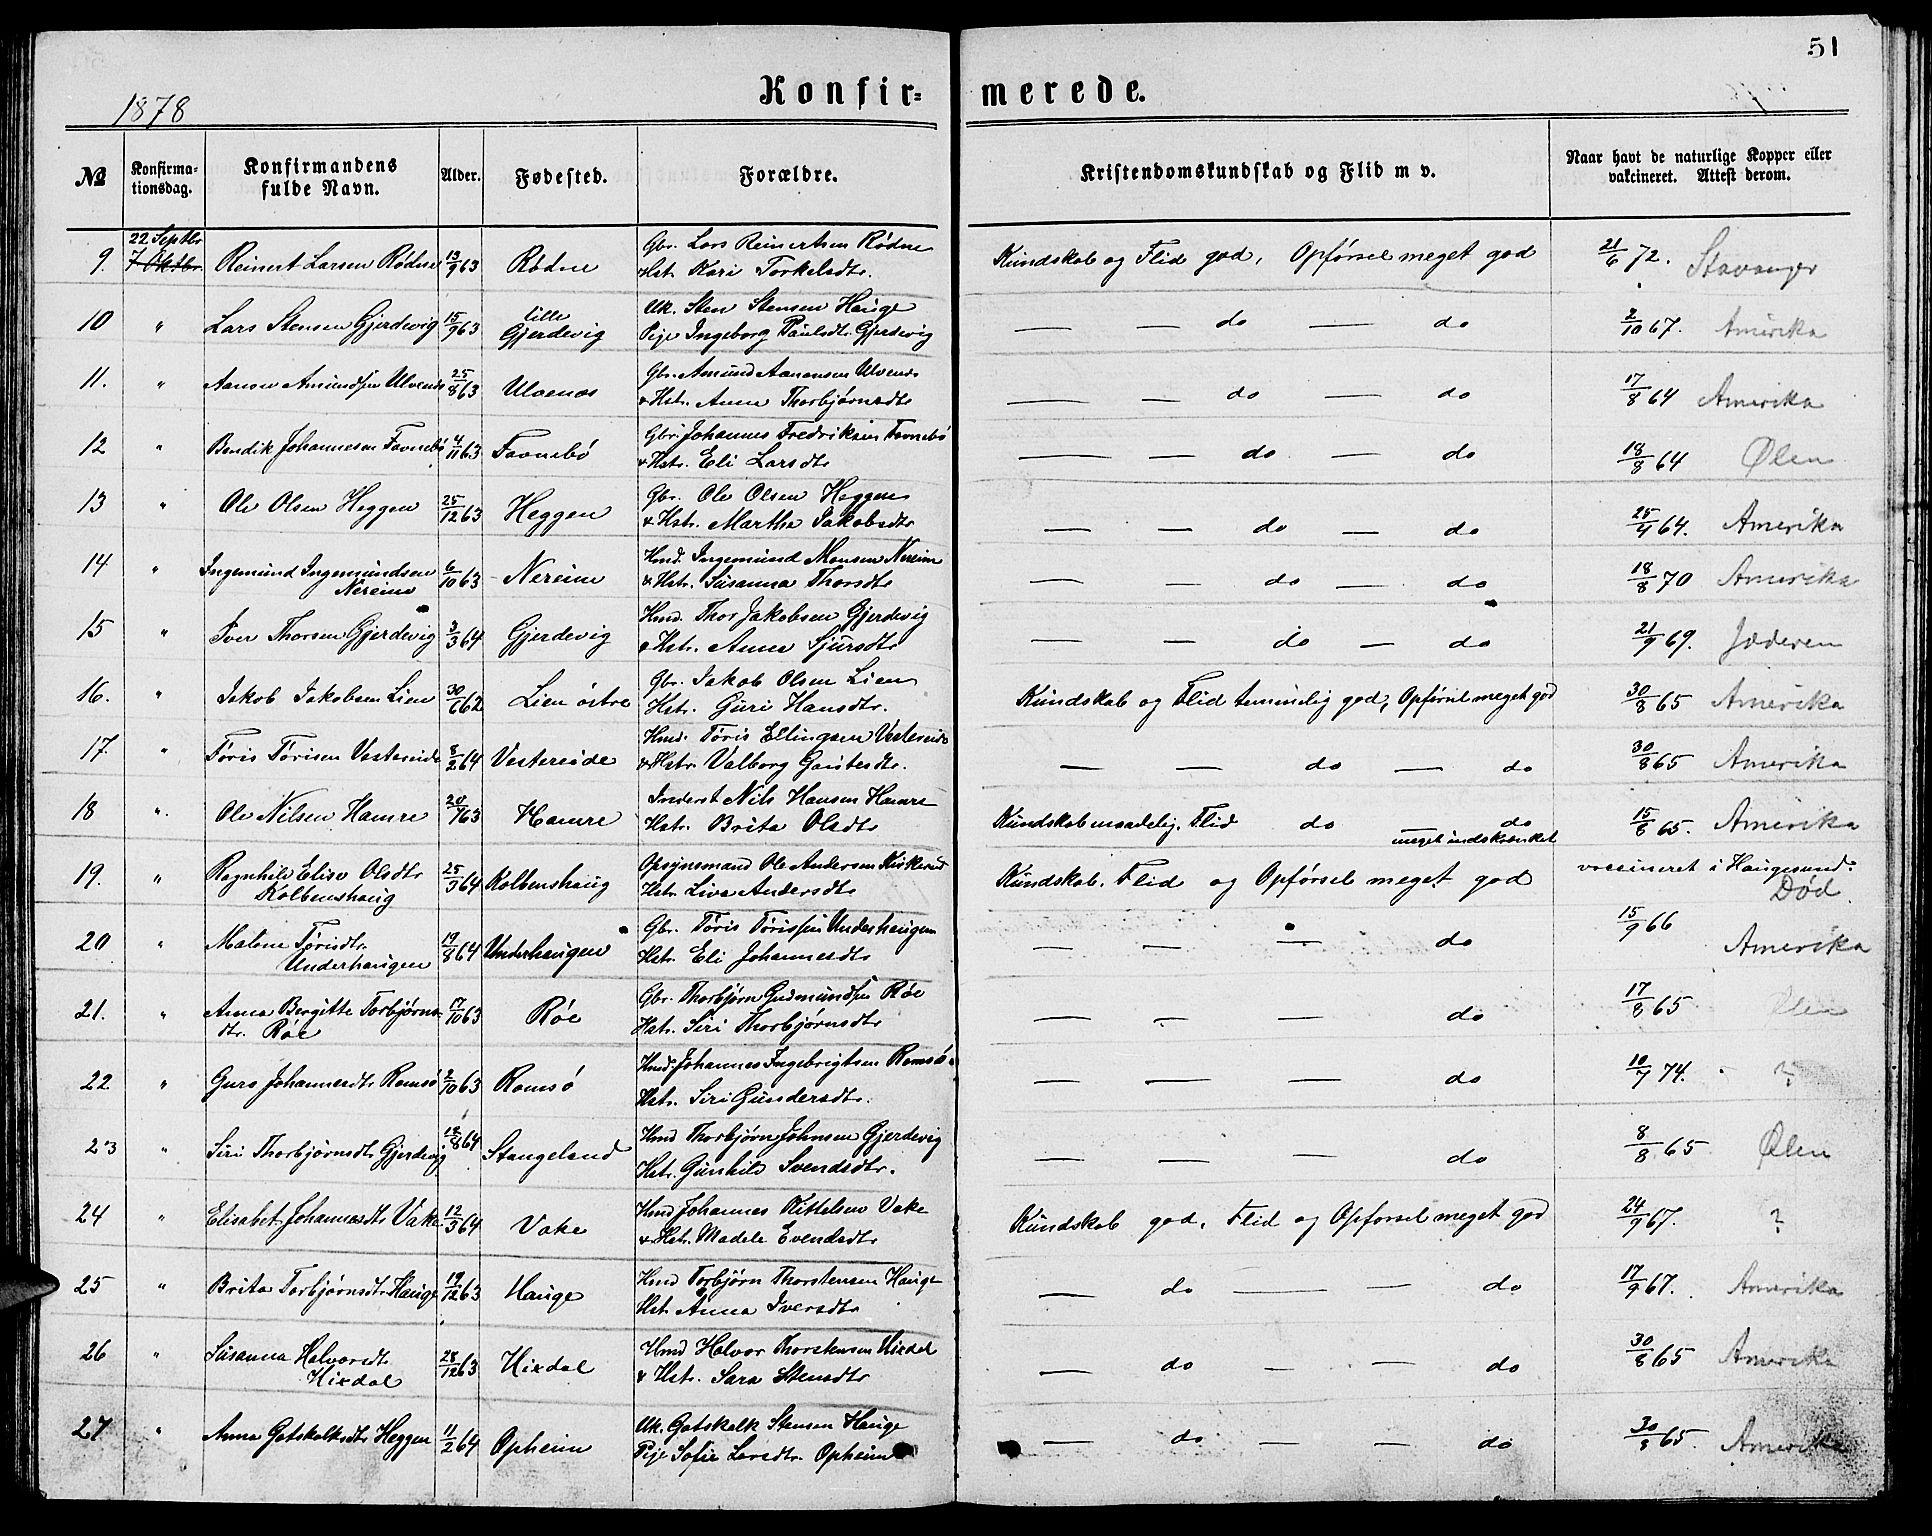 51
1878
Konfir-merede.
№ Konfirma-tionsdag. Konfirmandens fulde Navn. Alder. Fødested. Forældre. Kristendomskundskab og Flid m v. Naar havt de naturlige Kopper eller vakcineret. Attest derom.
22 Septbr
9. 7 Oktbr. Reinert Larsen Rødne 13/9 63 Rødne Gbr. Lars Reinertsen Rødne Kundskab og Flid god, Opførsel meget god 21/6 72. Stavanger
Hst. Kari Torkelsdtr.
10 " Lars Stensen Gjerdevig 15/9 63 lille Gjerdevig Uk. Sten Stensen Hauge — — do — do 2/10 67. Amerika
Pige Ingeborg Paulsdtr. Gjerdevig
11. " Aanen Amundsen Ulvenes 25/8 63 Ulvenes Gbr. Amund Aanensen Ulvenes — — do — do 17/8 64 Amerika
& Hstr. Anna Thorbjørnsdtr
12 " Bendik Johannesen Favnebø 4/11 63 Favnebø Gbr Johannes Fredriksen Favnebø — — do — do 18/8 64 Ølen
& Hstr. Eli Larsdtr
13 " Ole Olsen Heggen 25/12 63 Heggen Gbr. Ole Olsen Heggen — — do — do 25/4 64. Amerika
& Hstr. Martha Jakobsdtr
14 " Ingemund Ingemundsen Nereim 6/10 63 Nereim Hmd. Ingemund Monsen Nereim — — do — do 18/8 70 Amerika
& Hstr. Susanna Thorsdtr
15 " Iver Thorsen Gjerdevig 3/3 64 Gjerdevig Hmd. Thor Jakobsen Gjerdevig — — do — do 21/9 69. Jæderen
& Hstr. Anna Sjursdtr
16. " Jakob Jakobsen Lien 30/6 62 Lien østre Gbr. Jakob Olsen Lien Kundskab og Flid temmelig god, Opførsel meget god 30/8 65 Amerika
Hstr. Guri Hansdtr.
17. " Tøris Tørisen Vestereide 8/2 64 Vestereide Hmd. Tøris Ellingsen Vestereide — — do — do 30/8 65 Amerika
& Hstr Valborg Gautesdtr.
18 " Ole Nilsen Hamre 20/7 63 Hamre Inderst Nils Hansen Hamre Kundskab maadelig. Flid do — do 15/8 65. Amerika
Hstr. Brita Olsdtr meget indskrænket
19. " Ragnhild Elise Olsdtr Kolbenshaug 25/3 64 Kolbenshaug Opsynsmand Ole Andersen Kundskab. Flid og Opførsel meget god vaccineret i Haugesund. Død
Hstr. Live Andersdtr
20 " Malene Tørisdtr. Underhaugen 19/8 64 Underhaugen Gbr. Tøris Tørissen Underhaugen — — — do 15/9 66 Amerika
Hstr. Eli Johannesdtr
21. " Anna Bergitte Torbjørnsdtr. Røe 17/10 63 Røe Gbr. Thorbjørn Gudmundsen Røe — — — do 17/8 65 Ølen
Hstr. Siri Thorbjørnsdtr
22 " Guro Johannesdtr Romsø 2/10 63 Romsø Hmd. Johannes Ingebrigtsen Romsø — — — do 10/7 74. ?
Hstr. Siri Gundersdtr.
23 " Siri Thorbjørnsdtr Gjerdevig 18/8 64 Stangeland Hmd Thorbjørn Johnsen Gjerdevig — — — do 8/8 65 Ølen
Hstr. Gunhild Svendsdtr.
24 " Elisabet Johannesdtr Vake 12/3 64 Vake Hmd Johannes Kittelsen Vake Kundskab god, Flid og Opførsel meget god 24/9 67. ?
& Hstr. Madele Evendsdtr
25 " Brita Torbjørnsdtr Hauge 19/12 63 Hauge Hmd Torbjørn Thorstensen Hauge — do — — do 17/9 67. Amerika
Hst. Anna Iversdtr
26 " Susanna Halvorsdtr. Hixdal 28/12 63 Hixdal Hmd Halvor Thorstensen Hixdal — do — — do 30/8 65 Amerika
& Hstr. Sara Stensdtr
27 " Anna Gotskalksdtr Heggen 11/2 64 Opheim Uk. Gotskalk Stensen Hauge — do — — do 30/8 65. Amerika
Pige Sofie Larsdtr. Opheim